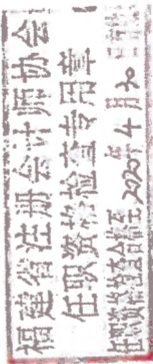 福建省注册会计师协会
任职资格检查专用章
任职资格检查合格至 2020年4月30日